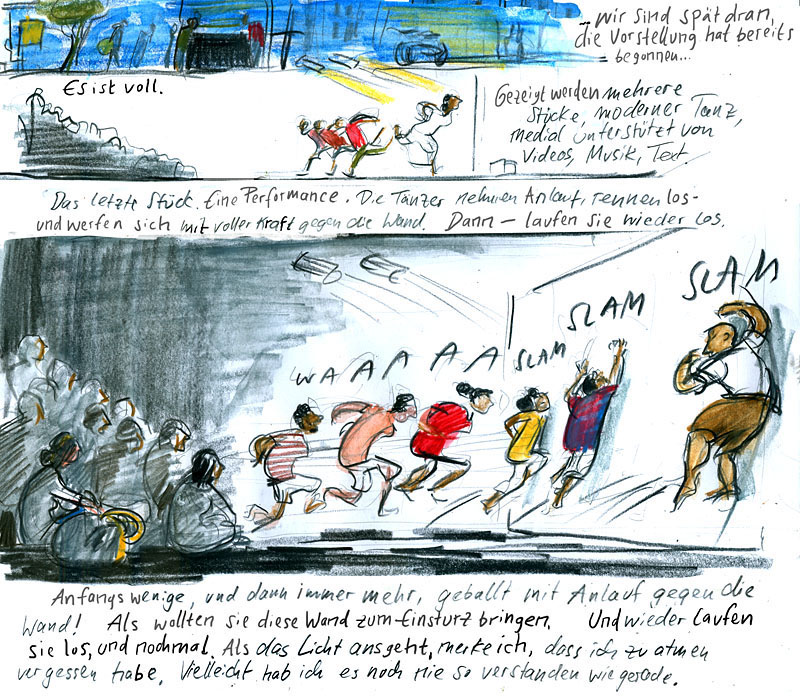 ... wir sind spät dran,
die Vorstellung hat bereits
begonnen...
Es ist voll.
Gezeigt werden mehrere
Stücke, moderner Tanz,
medial unterstützt von
Videos, Musik, Text
Das letzte Stück. Eine Performance. Die Tänzer nehmen Anlauf, rennen los -
und werfen sich mit voller Kraft gegen die Wand. Dann – laufen sie wieder los.
WAAAAA SLAM SLAM SLAM
Anfangs wenige, und dann immer mehr, geballt mit Anlauf gegen die
Wand! Als wollten sie diese Wand zum Einsturz bringen. Und wieder laufen
sie los, und nochmal. Als das Licht ausgeht, merke ich, dass ich zu atmen
vergessen habe. Vielleicht hab ich es noch nie so verstanden wie gerade.